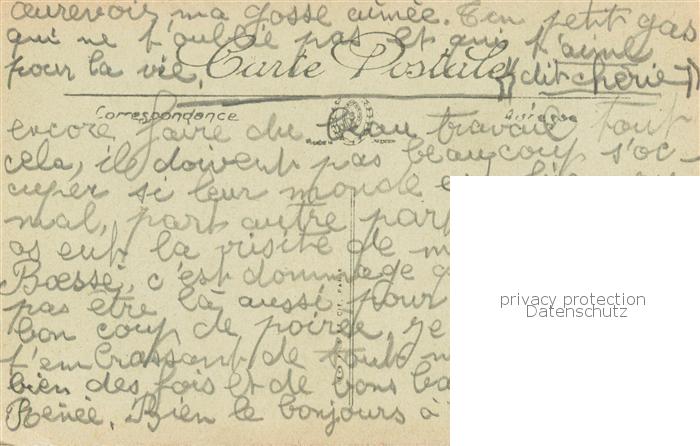 aurevoir ma gosse aimée. Ton petit gas
qui ne t'oublie pas et qui t'aime
pour la vie.
Carte Postale
(dit chérie)
Correspondance
Adresse
encore faire du beau travail tout
cela, ils doivent pas beaucoup s'oc-
cuper si leur monde
mal, part autre par
as eut la visite de
Boessé, c'est dommage
pas être là aussi pour
bon coup de poirée, je
t'embrassant de tout
bien des fois et de bons
Renée. Bien le bonjours à
privacy protection
Datenschutz